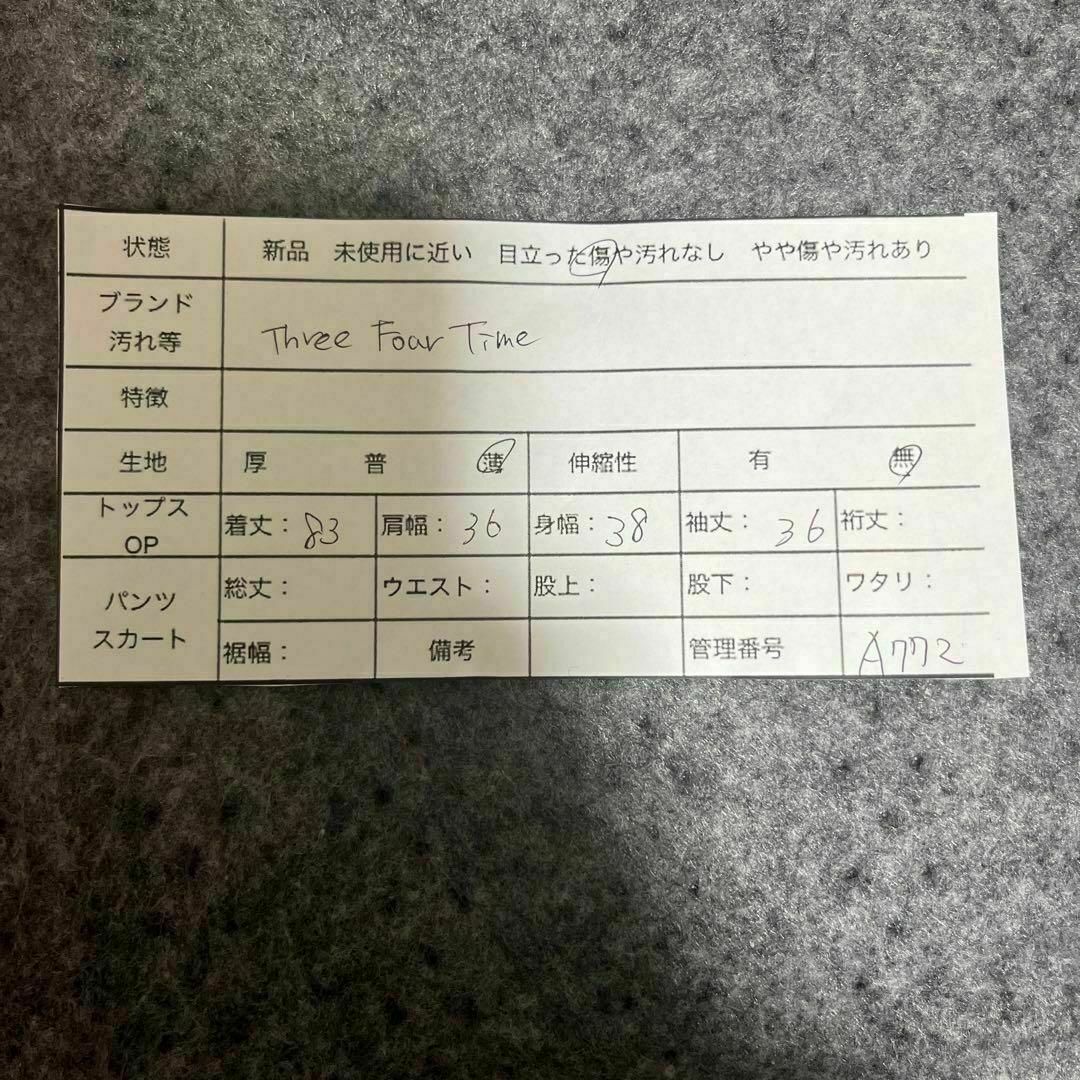 状態 新品 未使用に近い 目立った傷や汚れなし やや傷や汚れあり
ブランド
汚れ等 Three Four Time
特徴
生地 厚 普 薄 伸縮性 有 無
トップス
OP 着丈: 83 肩幅: 36 身幅: 38 袖丈: 36 裄丈:
パンツ
スカート 総丈: ウエスト: 股上: 股下: ワタリ:
裾幅: 備考 管理番号 A772